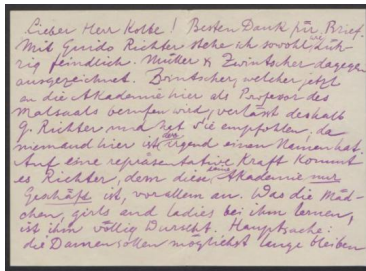 Lieber Herr Kolbe! Besten Dank für Brief.
Mit Guido Richter stehe ich sowohl,
feindlich. Müller & Zwintscher dagegen
ausgezeichnet. Zwintscher, welcher jetzt
an die Akademie hier als Professor des
Malsaals berufen wird, verlässt deshalb
G. Richter und hat Sie empfohlen, da
niemand hier ist, der irgend einen Namen hat.
Auf eine repräsentative Kraft kommt
es Richter, dem die Akademie nur
Geschäft ist, vor allem an. Was die Mäd-
chen, girls and ladies bei ihm lernen,
ist ihm völlig Durscht. Hauptsache:
die Damen sollen möglichst lange bleiben